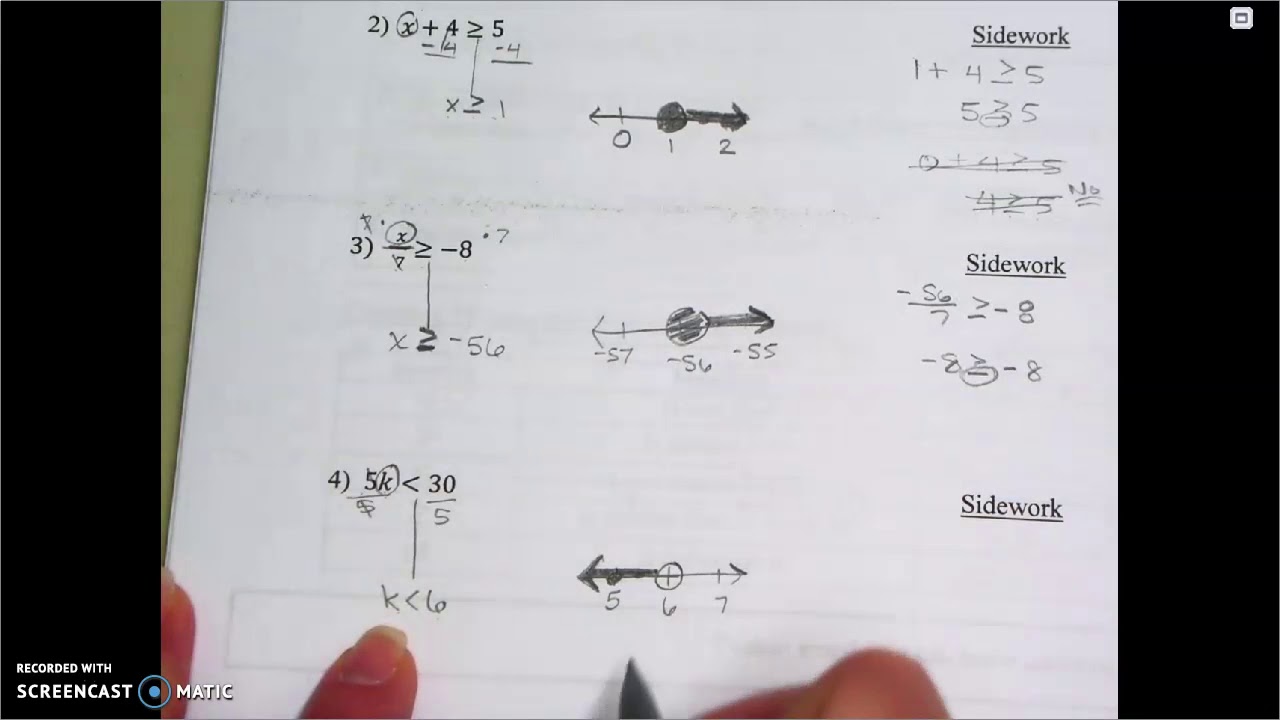 2) x + 4 ≥ 5
-4 -4
x ≥ 1
0 1 2
Sidework
1 + 4 ≥ 5
5 ≥ 5
0 + 4 ≥ 5
4 ≥ 5 No
7 · · 7
3) x/7 ≥ -8
x ≥ -56
-57 -56 -55
Sidework
-56/7 ≥ -8
-8 ≥ -8
4) 5k < 30
5 5
k < 6
5 6 7
Sidework
RECORDED WITH
SCREENCAST MATIC